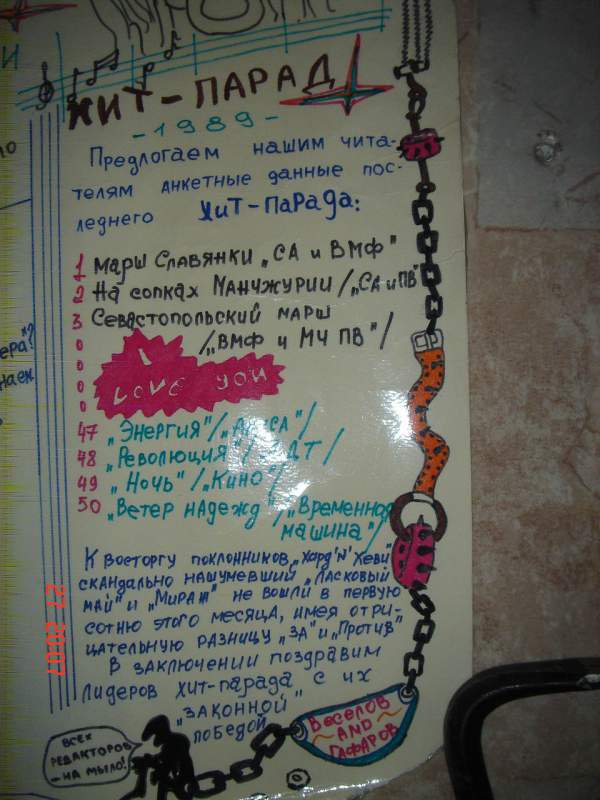 И
ХИТ-ПАРАД
-1989-
Предлогаем нашим чита-
телям анкетные данные пос-
леднего Хит-парада:
1 Марш Славянки „СА и ВМФ"
2 На сопках Манчжурии/„СА и ПВ"
3 Севастопольский марш
/„ВМФ и МЧ ПВ"/
I
LOVE YOU
47 „Энергия"/„Алиса"/
48 „Революция"/ ДДТ/
49 „Ночь"/„Кино"/
50 „Ветер надежд"/„Временной
машина"/
К восторгу поклонников „Хард'n'Хеви"
скандально нашумевший „Ласковый
май" и „Мираж" не вошли в первую
сотню этого месяца, имея отри-
цательную разницу „За" и „Против"
В заключении поздравим
лидеров хит-парада с их
„законной"
победой
Веселов
AND
Гафаров
Всех
редакторов
- на мыло!
ера"?
наем
27 2007